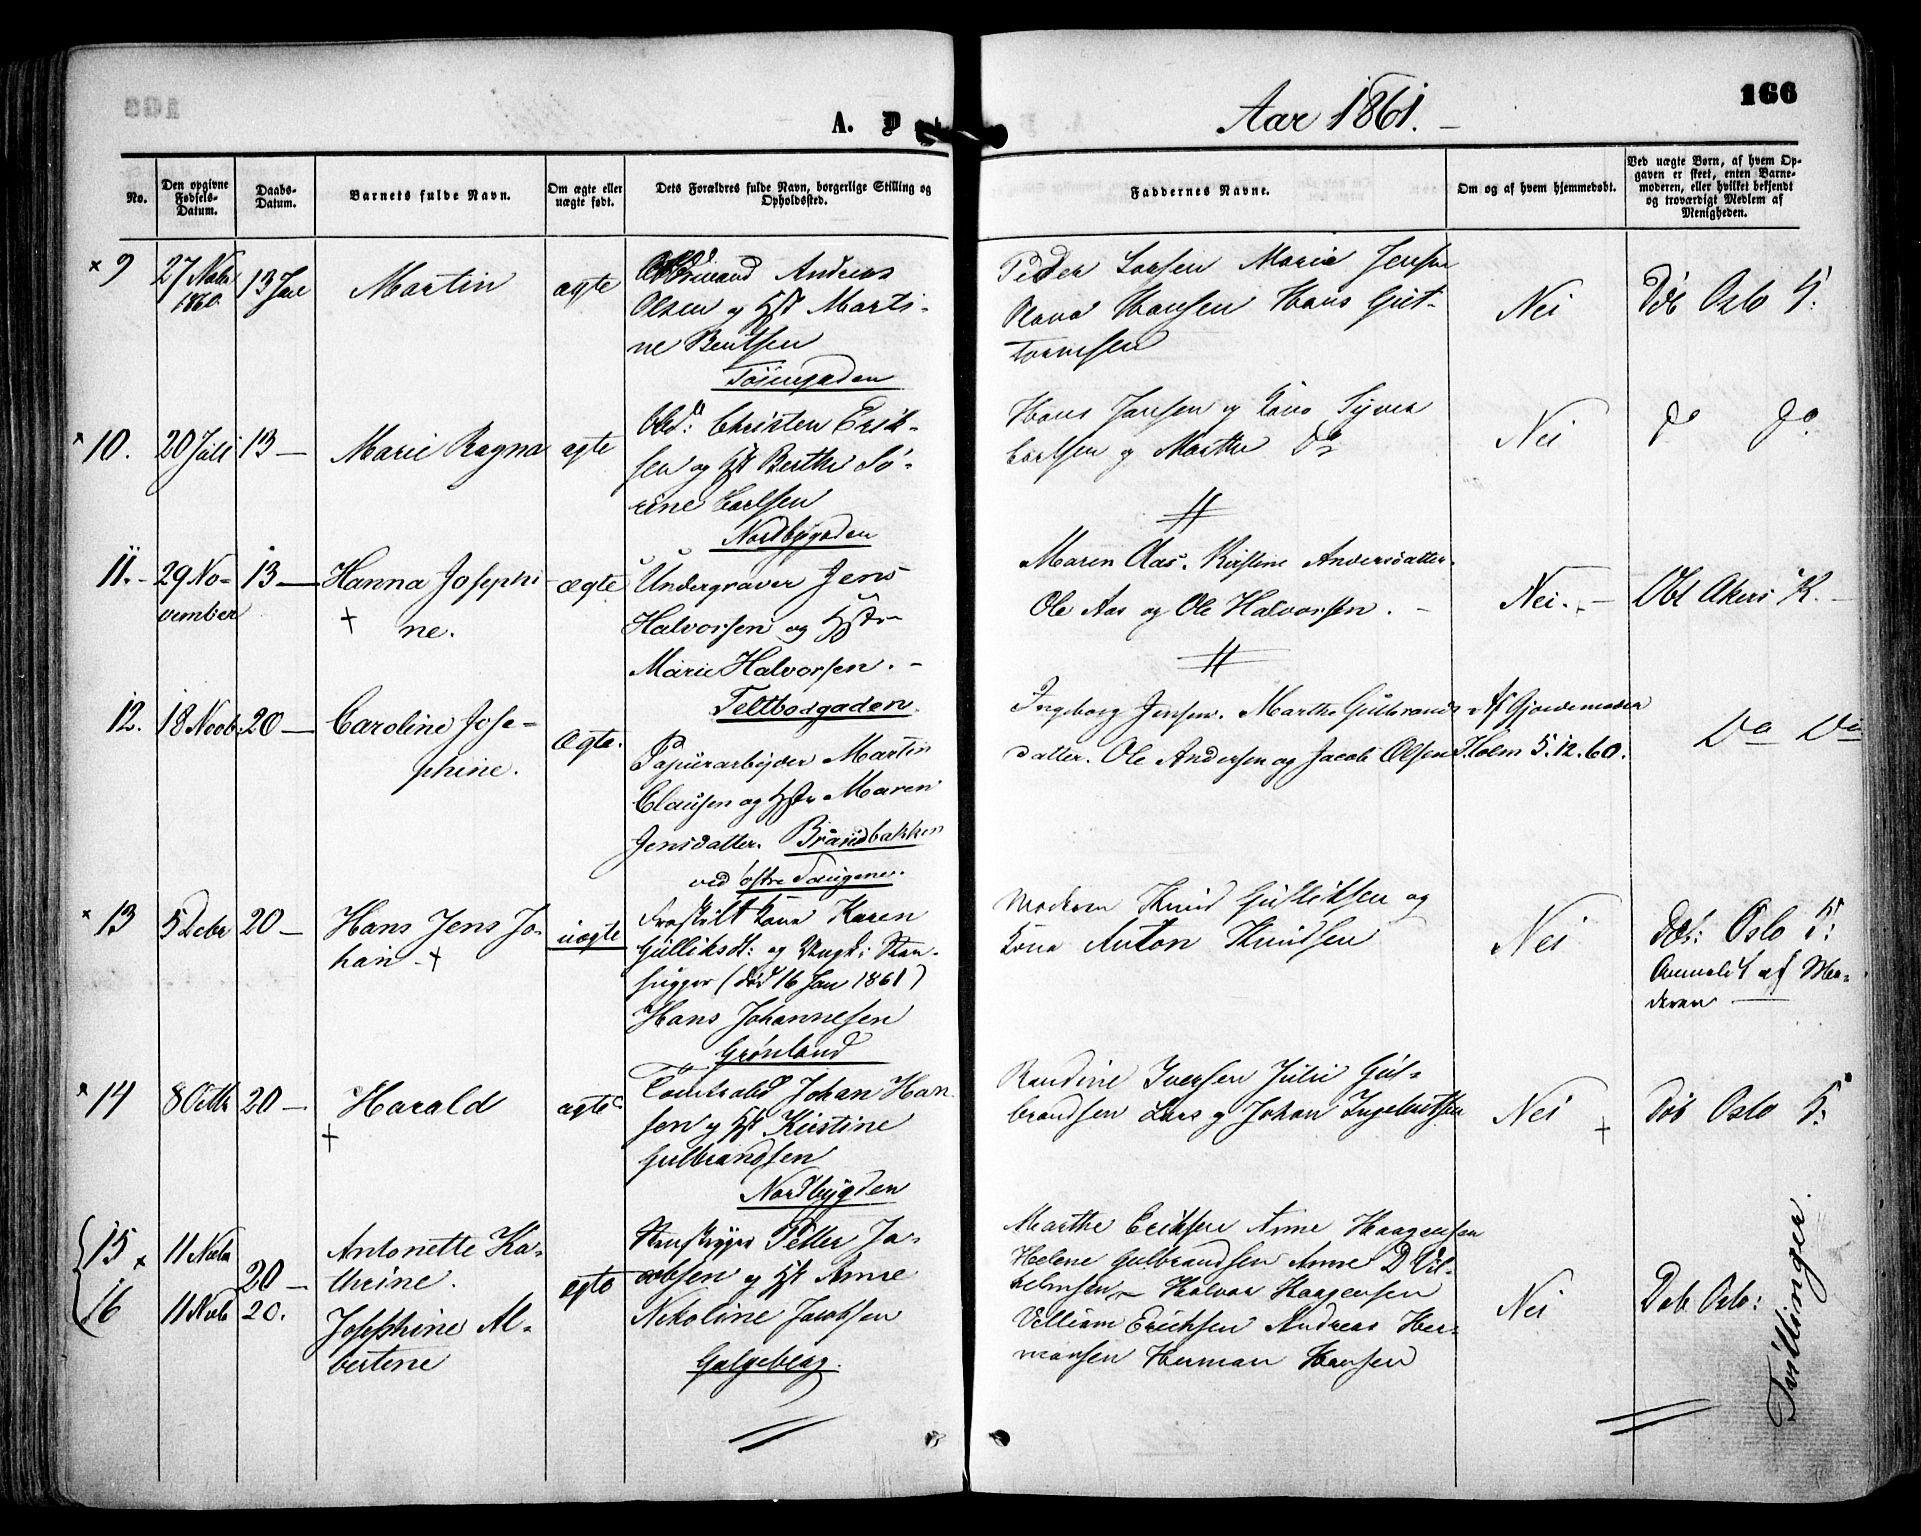 166
A. D
Aar 1861.
No.
Den opgivne Fødsels-Datum.
Daabs-Datum.
Barnets fulde Navn.
Om ægte eller uægte født.
Dets Forældres fulde Navn, borgerlige Stilling og Opholdssted.
Faddernes Navne.
Om og af hvem hjemmedøbt.
Ved uægte Børn, af hvem Opgaven er skeet, enten Barnemoderen, eller hvilket bekjendt og troværdigt Medlem af Menigheden.
9 27 Novbr 1860. 13 Jan Martin ægte
Andreas
Olsen og Hst Marti-
ne Bentsen
Töiengaden
Peder Larsen Marie Jensen
Olava Hansen Hans Gut-
tormsen
Nei
Døb Oslo K.
10. 20 Juli 13 — Marie Ragna ægte
Abd: Christen Erik-
sen og Hst Berthe So-
rine Carlsen
Nordbygaden
Hans Jansen og Kone Syver
Carlsen og Marthe Do
Nei
do do
11. 29 No-
vember
13 — Hanna Josephi-
ne.
ægte
Undergraver Jens
Halvorsen og Hstr
Marie Halvorsen. —
Teltbodgaden.
Maren Aas. Kirstine Andersdatter.
Ole Aas og Ole Halvorsen. —
Nei. —
Dbt Akers K. —
12. 18 Novb. 20 — Caroline Jose-
phine.
Ægte.
Papirarbejder Martin
Clausen og Hstr Maren
Jensdatter. Brandbakken
ved østre Tangene.
Ingeborg Jensen. Marthe Gulbrands
datter. Ole Andersen og Jacob Olsen
Af Gjordemoder
Holm 5.12.60.
Do Do
13 5 Debr 20 — Hans Jens Jo-
han
uægte
Fraskilt Kone Karen
Gulliksdt: og Ungk: Sten-
hugger (død 16 Jan 1861)
Hans Johannesen
Grönland
Moderen Knud Gulliksen og
Kone Anton Knudsen
Nei
Døb: Oslo K:
Anmeldt af Mo-
deren —
14 8 Octbr 20 — Harald ægte
Tomteabd Johan Han
sen og Hst Kirstine
Gulbrandsen
Nordbygden
Randine Iversen Julie Gul-
brandsen Lars og Johan Ingebritsen
Nei
Døb Oslo K:
15 11 Novbr 20 — Antonette Ka-
thrine.
16 11 Novb 20. Josephine Al-
bertine
ægte
Petter Ja-
cobsen og Hst Anne
Nikoline Jacobsen
Galgeberg.
Marthe Eriksen Anne Haagensen
Helene Gulbrandsen Anne D Vil-
helmsen — Halvor Haagensen
Villiam Erichsen Andreas Her-
mansen Herman Hansen
Nei
Døb Oslo:
Tvillinger.